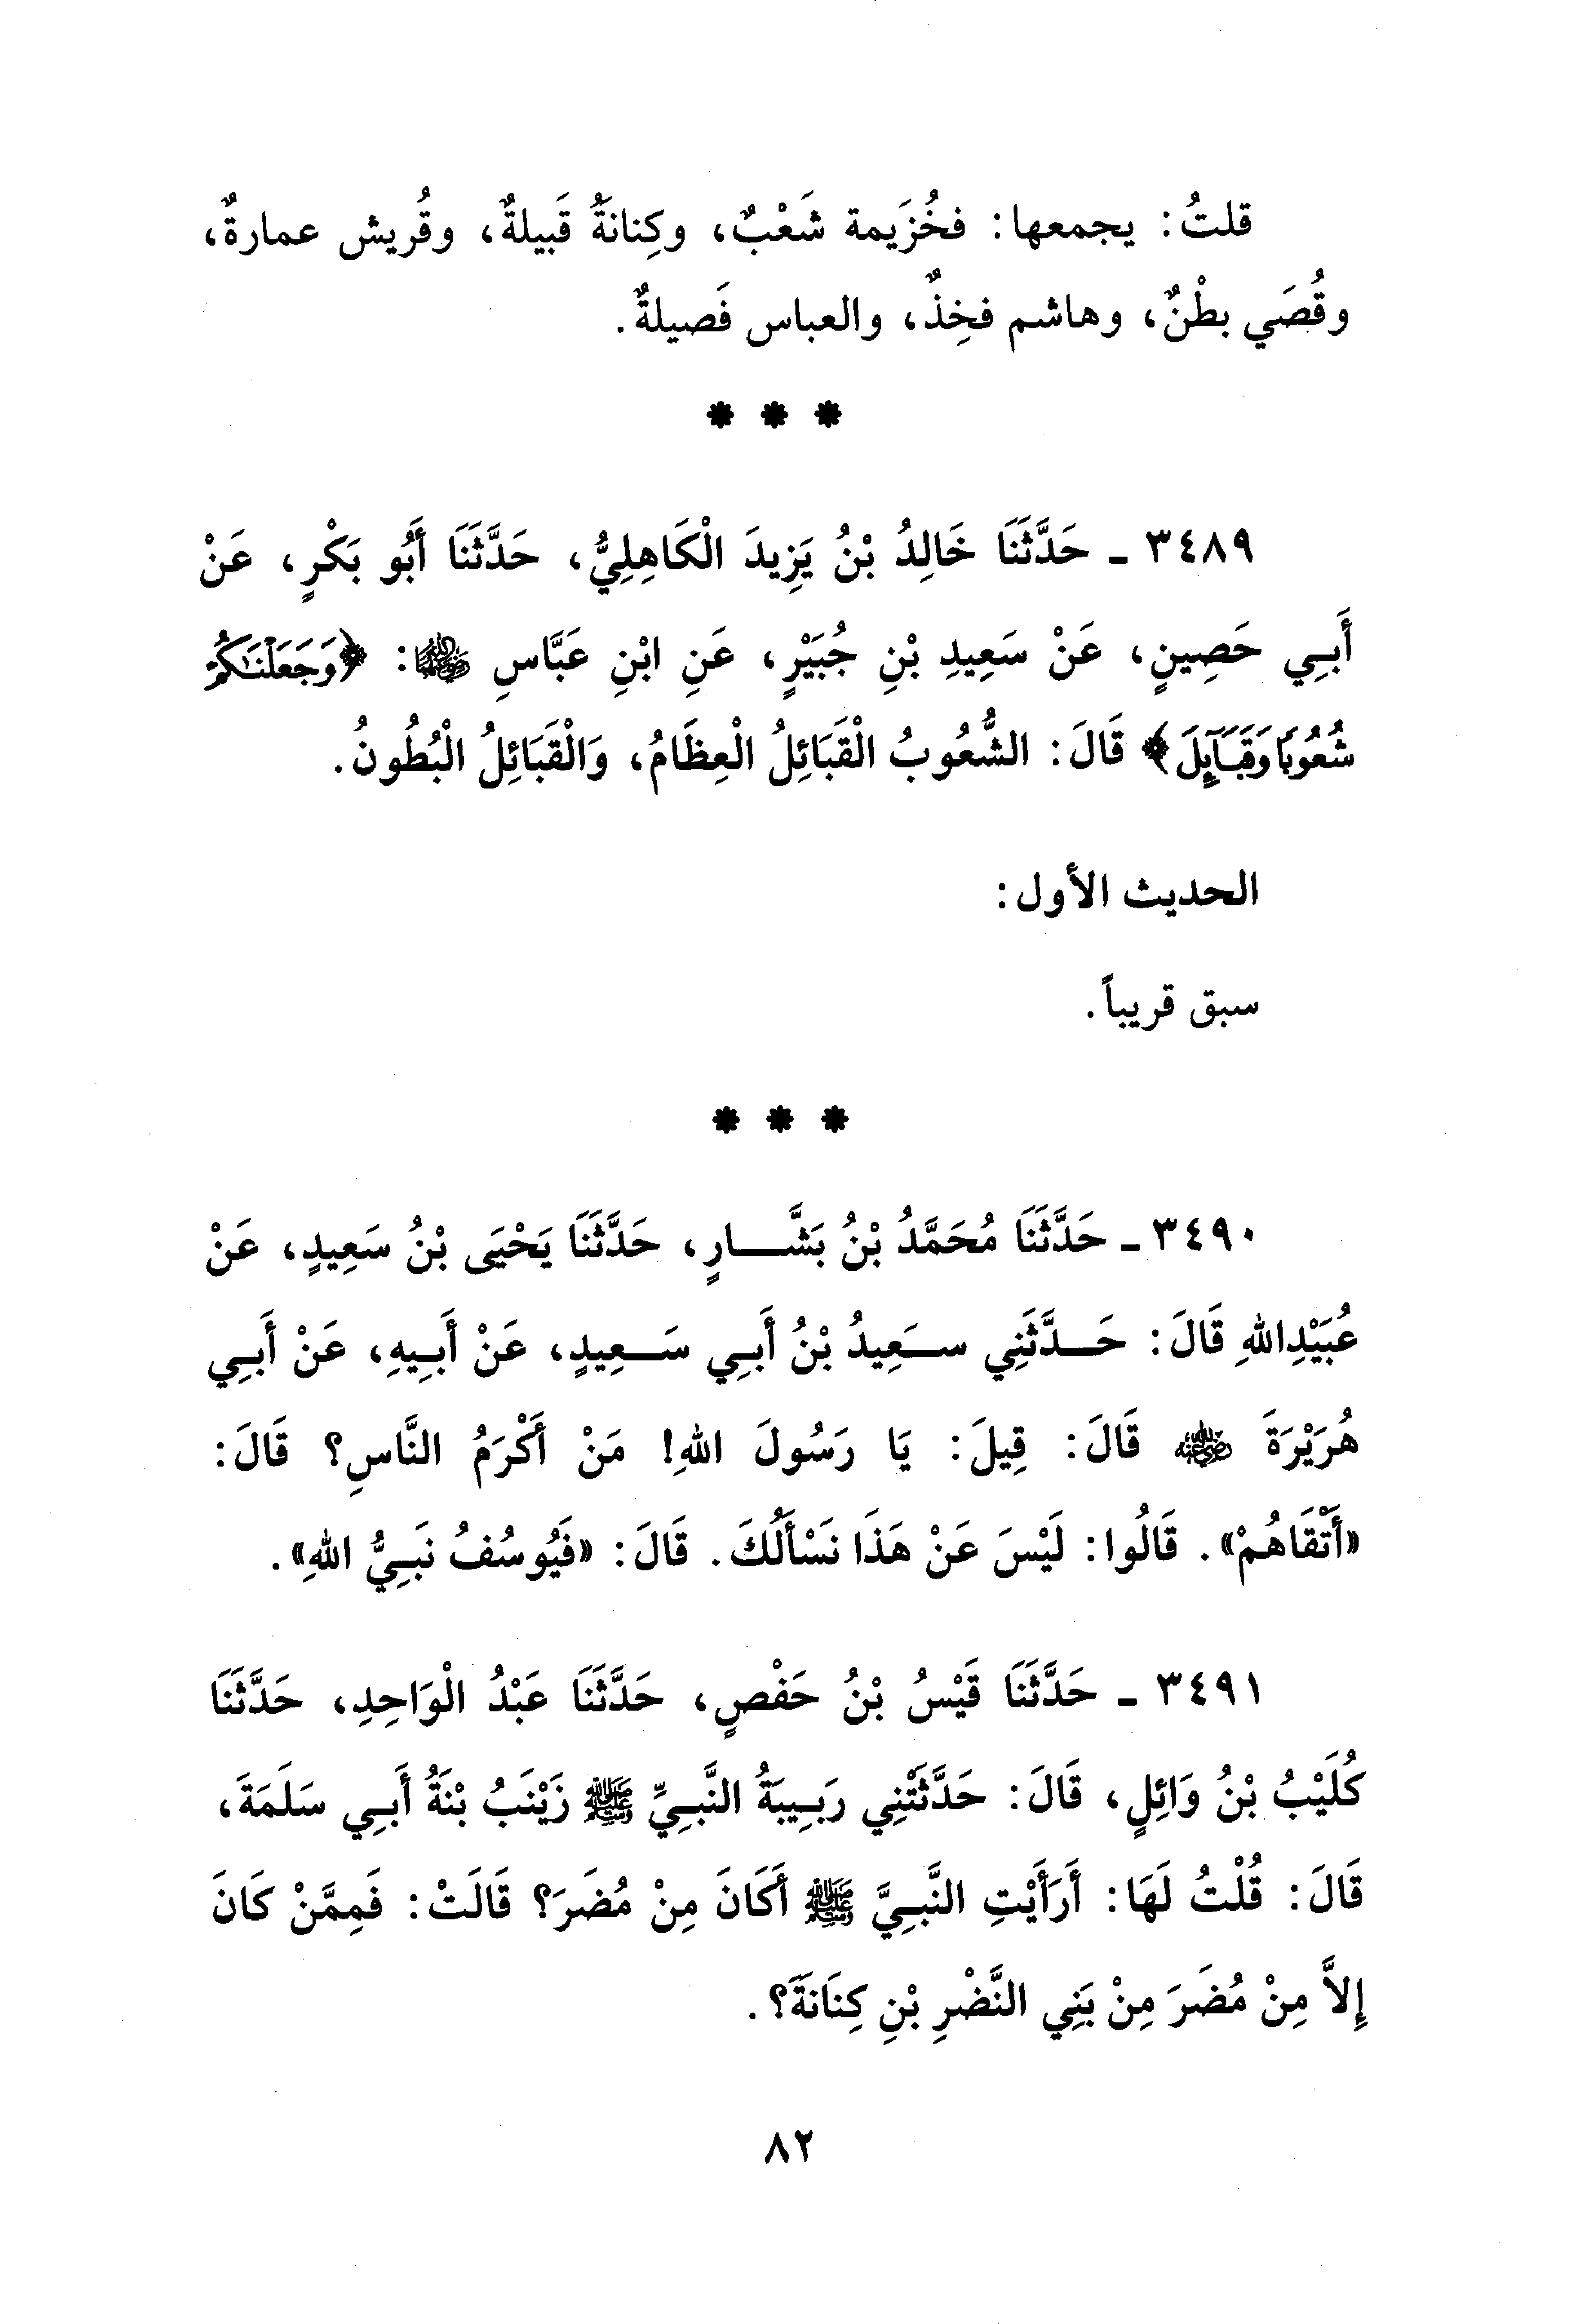 قلتُ: يجمعها: فخُزَيمة شَعْبٌ، وكِنانةُ قَبيلةٌ، وقُريش عمارةٌ،
وقُصَي بطْنٌ، وهاشم فخِذٌ، والعباس فَصيلةٌ.
* * *
٣٤٨٩ ـ حَدَّثَنَا خَالِدُ بْنُ يَزِيدَ الْكَاهِلِيُّ، حَدَّثَنَا أَبُو بَكْرٍ، عَنْ
أَبِي حَصِينٍ، عَنْ سَعِيدِ بْنِ جُبَيْرٍ، عَنِ ابْنِ عَبَّاسِ رضي الله عنهما: ﴿وَجَعَلْنَٰكُمْ
شُعُوبًا وَقَبَآئِلَ﴾ قَالَ: الشُّعُوبُ الْقَبَائِلُ الْعِظَامُ، وَالْقَبَائِلُ الْبُطُونُ.
الحديث الأول:
سبق قريباً.
* * *
٣٤٩٠ ـ حَدَّثَنَا مُحَمَّدُ بْنُ بَشَّارٍ، حَدَّثَنَا يَحْيَى بْنُ سَعِيدٍ، عَنْ
عُبَيْدِاللهِ قَالَ: حَدَّثَنِي سَعِيدُ بْنُ أَبِي سَعِيدٍ، عَنْ أَبِيهِ، عَنْ أَبِي
هُرَيْرَةَ رضي الله عنه قَالَ: قِيلَ: يَا رَسُولَ اللهِ! مَنْ أَكْرَمُ النَّاسِ؟ قَالَ:
«أَتْقَاهُمْ». قَالُوا: لَيْسَ عَنْ هَذَا نَسْأَلُكَ. قَالَ: «فَيُوسُفُ نَبِيُّ اللهِ».
٣٤٩١ ـ حَدَّثَنَا قَيْسُ بْنُ حَفْصٍ، حَدَّثَنَا عَبْدُ الْوَاحِدِ، حَدَّثَنَا
كُلَيْبُ بْنُ وَائِلٍ، قَالَ: حَدَّثَتْنِي رَبِيبَةُ النَّبِيِّ ﷺ زَيْنَبُ بْنَةُ أَبِي سَلَمَةَ،
قَالَ: قُلْتُ لَهَا: أَرَأَيْتِ النَّبِيَّ ﷺ أَكَانَ مِنْ مُضَرَ؟ قَالَتْ: فَمِمَّنْ كَانَ
إِلاَّ مِنْ مُضَرَ مِنْ بَنِي النَّضْرِ بْنِ كِنَانَةَ؟.
٨٢